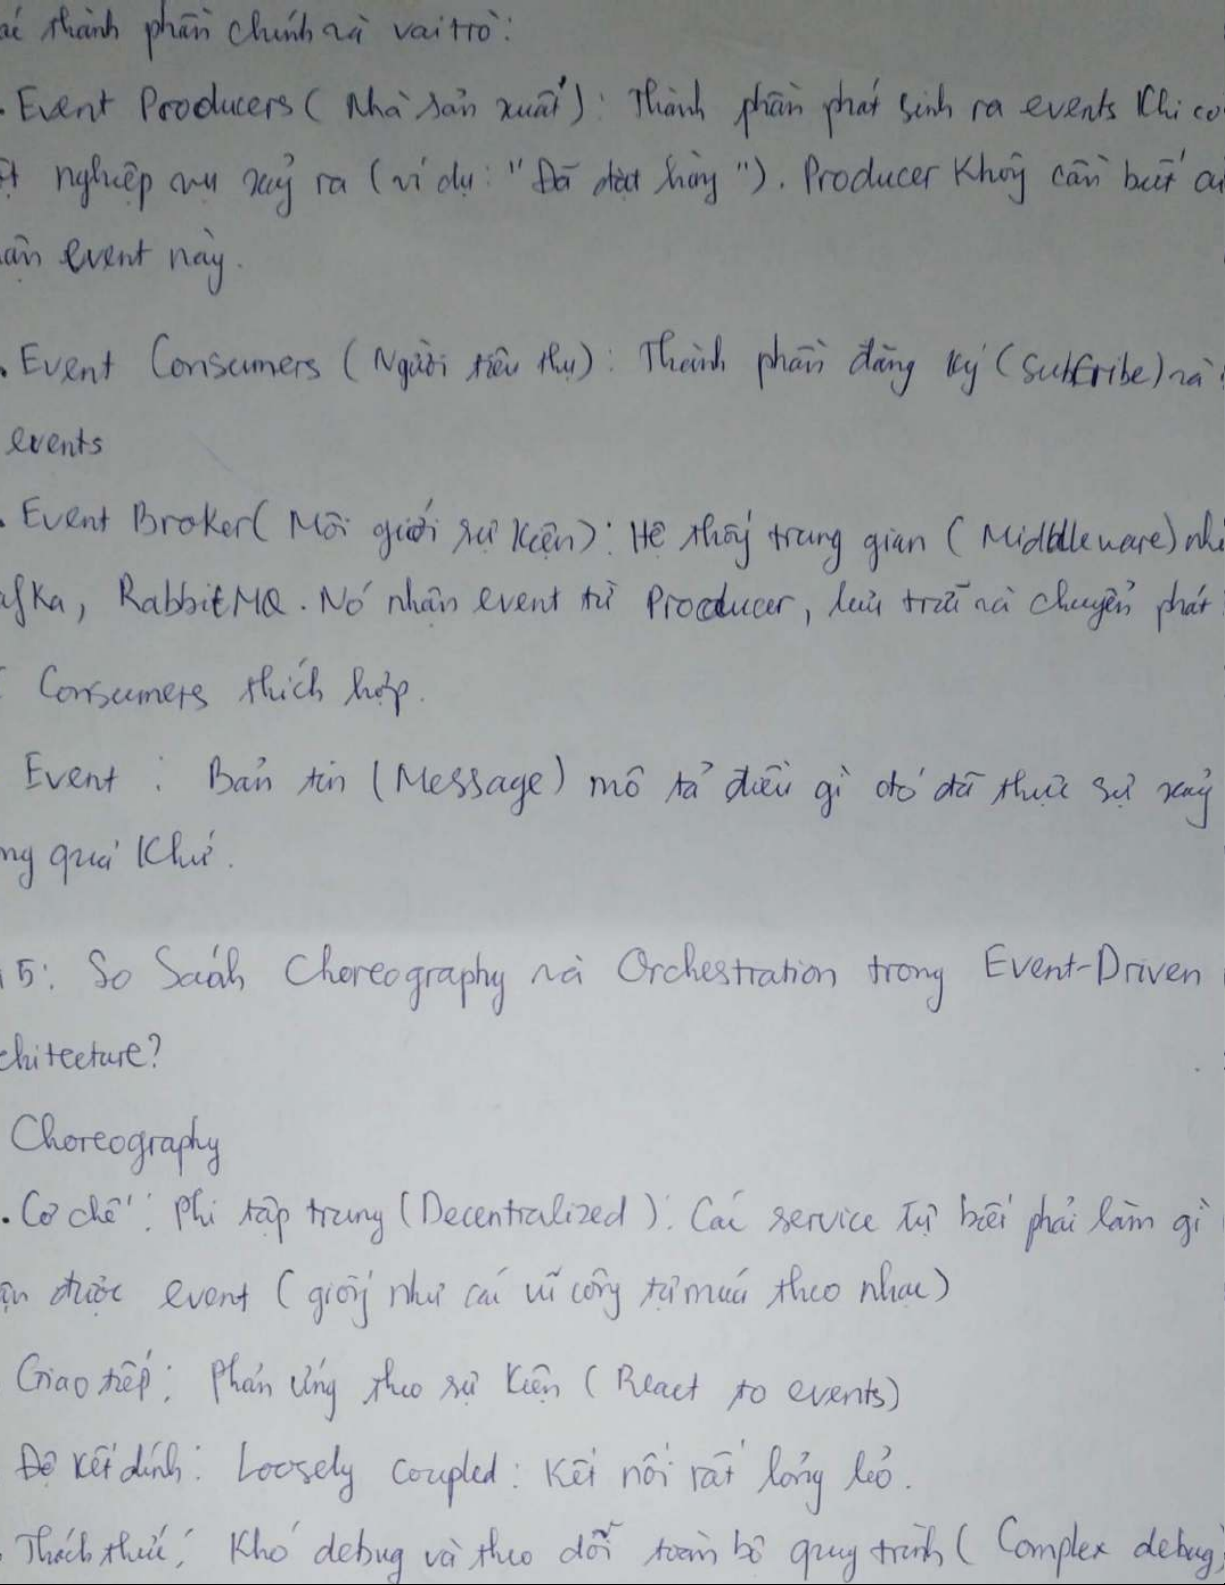 thành phần chính và vai trò:
. Event Producers ( Nhà sản xuất ): Thành phần phát sinh ra events khi có
nghiệp vụ xảy ra ( ví dụ: "Đã đặt hàng "). Producer không cần biết ai
event này.
. Event Consumers ( Người tiêu thụ): Thành phần đăng ký ( Subscribe) và
events
. Event Broker( Môi giới sự kiện): Hệ thống trung gian ( Middleware) như
afka, RabbitMQ. Nó nhận event từ Producer, lưu trữ và chuyển phát
Consumers thích hợp.
Event : Bản tin ( Message) mô tả điều gì đó đã thực sự xảy
ng quá khứ.
5: So Saánh Choreography và Orchestration trong Event-Driven
chitecture?
Choreography
. Cơ chế: Phi tập trung ( Decentralized ): Các service tự biết phải làm gì
ận được event ( giống như các vũ công tự múa theo nhạc)
Giao tiếp: Phản ứng theo sự kiện ( React to events)
Độ kết dính: Loosely coupled: Kết nối rất lỏng lẻo.
. Thách thức: Khó debug và theo dõi toàn bộ quy trình ( Complex debug)